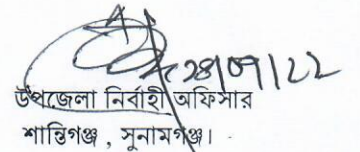 ২৪/০৭/২২
উপজেলা নির্বাহী অফিসার
শান্তিগঞ্জ , সুনামগঞ্জ।